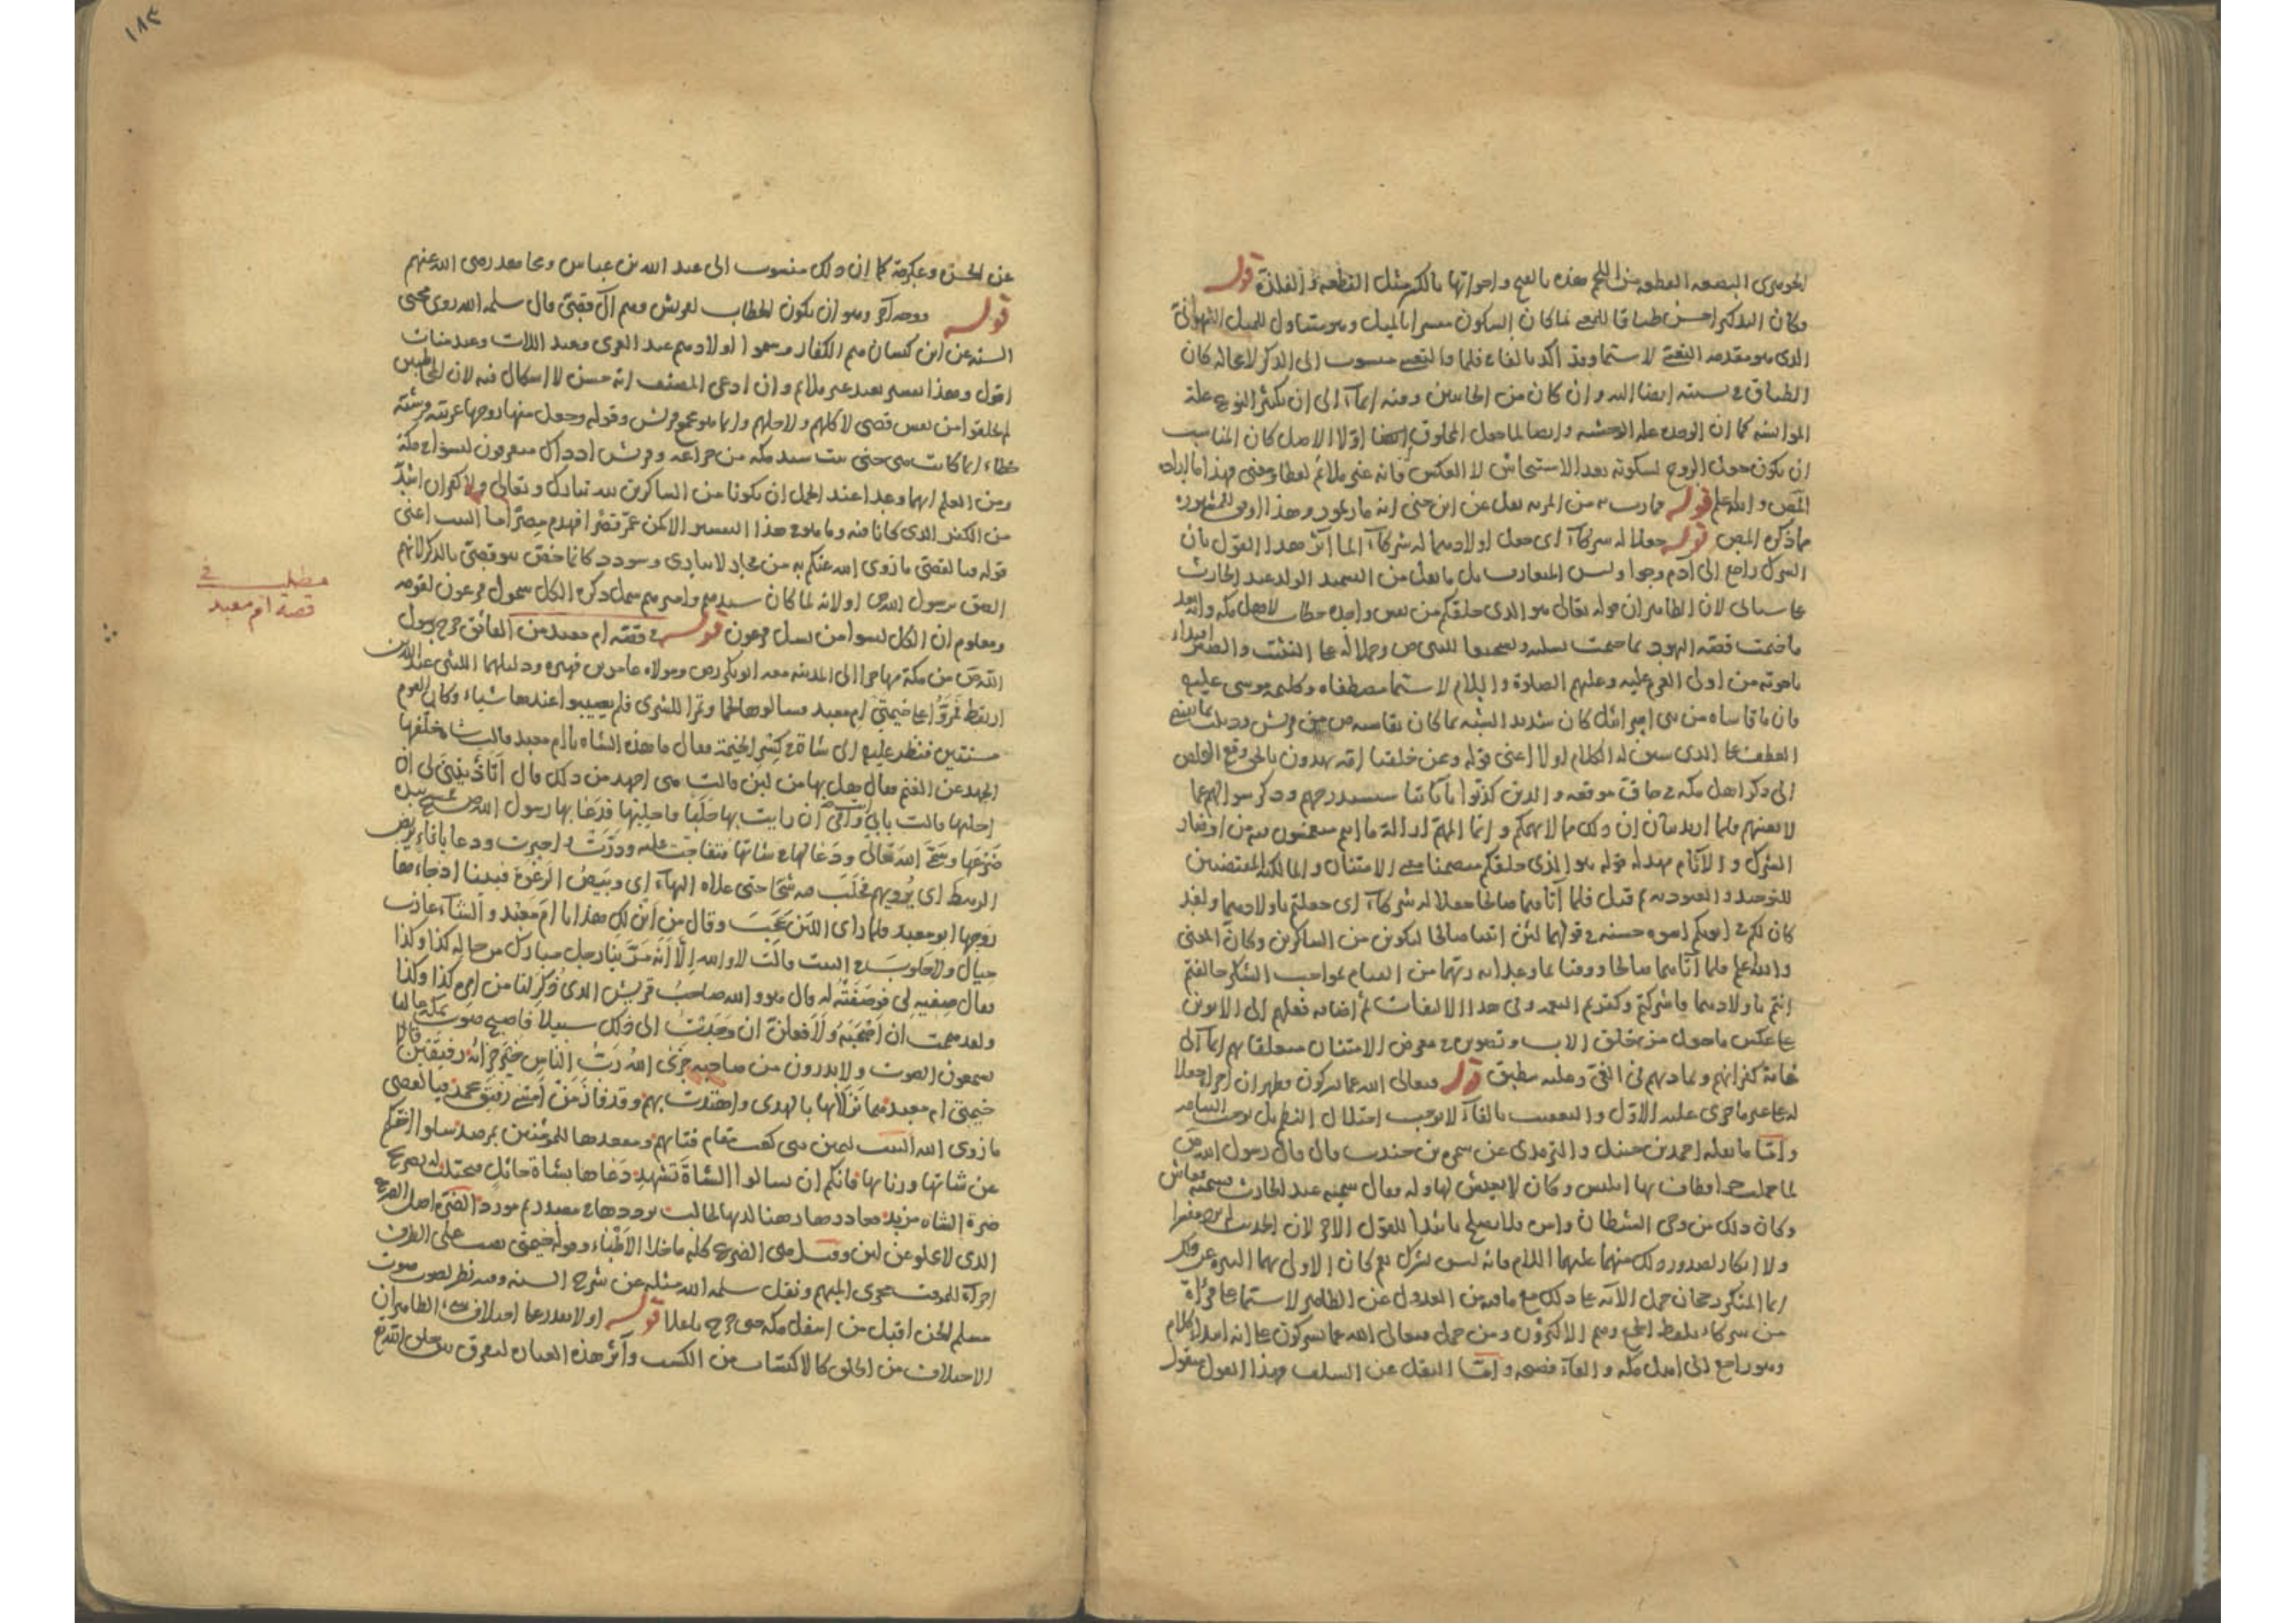 الجوهرى البضعه القطعه من اللحم هذه بالفتح واخواتها بالكسر مثل القطعة والفلذة قوله
وكان التذكير احسن طباقا للمعنى لما كان السكون مفسرا بالميل وهو متناول للميل الشهوانى
الذى هو مقدمه التغشى لاسيما وقد اكد بالفاء فلما والتغشى منسوب الى الذكر لا محاله كان
الطباق فى نسبته ايضا اليه وان كان من الجانبين وفيه ايماء الى ان تكثير النوع علة
الموانسه كما ان الوحده علة الوحشه وايضا لما جعل المخلوق اولا الاصل كان المناسب
ان يكون جعل الزوج لسكونه بعد الاستيحاش لا العكس فانه غير ملائم لفظا ومعنى فهذا ما اراده
المص والله اعلم قوله فمارت به من المرية نقل عن ابن جنى انه
ما ذكره المص قوله جعلا له شركاء اى جعل اولادهما له شركاء انما آثر هذا القول بان
الشرك راجع الى آدم وحوا وليس المتعارف بل ما نقل من تسميه الولد عبد الحارث
لان الظاهر ان قوله تعالى هو الذى خلقكم من نفس واحده خطاب لاهل مكه وانه بعد
ما ختمت قصه اليهود بما ختمت تسليه وتشجيعا للنبى ص وحملا له على التثبت والصبر اقتداء
باخوته من اولى العزم عليه وعليهم الصلوة والسلام لاسيما مصطفاه وكليمه موسى عليه
فان ما قاساه من بنى اسرائيل كان شديد الشبه بما كان يقاسيه ص من قريش
العطف على الذى سيق له الكلام اولا اعنى قوله وممن خلقنا امة يهدون بالحق وقع التخلص
الى ذكر اهل مكه فى حاق موقعه والذين كذبوا باياتنا سنستدرجهم وذكر سوالهم عما
لا يعنيهم فلما اريد بيان ان ذلك مما لا يهمكم وانما المهم ازالة ما انتم منغمسون فيه من اوضار
الشرك والآثام مهد له قوله هو الذى خلقكم متضمنا معنى الامتنان والمالكيه المقتضيين
للتوحيد والعبوديه ثم قيل فلما آتاهما صالحا جعلا له شركاء اى جعلتم يا اولادهما ولقد
كان لكم فى ابويكم اسوه حسنه فى قولهما لئن اتيتنا صالحا لنكونن من الشاكرين وكان المعنى
والله اعلم فلما آتاهما صالحا ووفيا بما وعدا به ربهما من القيام بمواجب الشكر خالفتم
انتم يا اولادهما فاشركتم وكفرتم النعمه وفى هذا الالتفات ثم اضافه فعلهم الى الابوين
على عكس ما جعل من خلق الاب وتصويره فى معرض الامتنان متعلقا بهم ايماء الى
غاية كفرانهم وتماديهم فى الغى وعليه ينطبق قوله فتعالى الله عما يشركون فظهر ان اجراء جعلا
له على غير ما اجرى عليه الاول والتعقيب بالفاء لا يوجب اختلال النظم بل يوجب التيامه
واما ما نقله احمد بن حنبل والترمذى عن سمرة بن جندب قال قال رسول الله ص
لما حملت حوا طاف بها ابليس وكان لا يعيش لها ولد فقال سميه عبد الحارث فسمته فعاش
وكان ذلك من وحى الشيطان وامره فلا يصلح مانعا للقول الاخر لان الحديث
ولا انكار لصدور ذلك منهما عليهما السلام فانه ليس بشرك نعم كان الاولى بهما التنزه عن ذلك
انما المنكر رجحان حمل الآيه على ذلك مع ما فيه من العدول عن الظاهر لاسيما على قراءة
من شركاء بلفظ الجمع وهم الاكثرون ومن حمل فتعالى الله عما يشركون على انه ابتداء كلام
وهو راجع الى اهل مكه والفاء فصيحه واما النقل عن السلف فهذا القول منقول
١٨٣
عن الحسن وعكرمة كما ان ذلك منسوب الى عبد الله بن عباس ومجاهد رضى الله عنهم
قوله ووجه آخر وهو ان يكون الخطاب لقريش وهم آل قصى قال سلمه الله روى محيى
السنه عن ابن كيسان هم الكفار وسموا اولادهم عبد العزى وعبد اللات وعبد مناف
اقول وهذا تفسير بعيد غير ملائم وان ادعى المصنف انه حسن لا اشكال فيه لان المخاطبين
لم يخلقوا من نفس قصى لا كلهم ولا جلهم وانما هو مجمع قريش وقوله وجعل منها زوجها عربية قرشيه
خطاء انما كانت حبى بنت سيد مكه من خزاعه وقريش اذ ذاك متفرقون ليسوا فى مكة
ومن العلم انهما وعدا عند الحمل ان يكونا من الشاكرين لله تبارك وتعالى ولا كفران اشد
من الكفر الذى كانا فيه وما هو فى هذا التفسير الا كمن عمر قصرا فهدم مصرا اما البيت اعنى
قوله فيا لقصى ما زوى الله عنكم به من فخار لا يبارى وسودد كانما خص بنو قصى بالذكر لانهم
الصق برسول الله ص اولانه لما كان سيدهم واميرهم شمل ذكره الكل شمول فرعون لقومه
ومعلوم ان الكل ليسوا من نسل فرعون قوله فى قصه ام معبد من الفائق خرج رسول
الله ص من مكة مهاجرا الى المدينه معه ابو بكر رض ومولاه عامر بن فهيره ودليلهما الليثى عبد الله بن
اريقط فمروا على خيمتى ام معبد فسالوها لحما وتمرا للشرى فلم يصيبوا عندها شيئا وكان القوم
مسنتين فنظر عليه الى شاة فى كسر الخيمة فقال ما هذه الشاه يا ام معبد قالت شاه خلفها
الجهد عن الغنم فقال هل بها من لبن قالت هى اجهد من ذلك قال اتأذنين لى ان
احلبها قالت بابى وامى ان رايت بها حلبا فاحلبها فدعا بها رسول الله ص فمسح بيده
ضرعها وسمى الله تعالى ودعا لها فى شاتها فتفاجت عليه ودرت واجترت ودعا باناء يربض
الرهط اى يرويهم فحلب فيه ثجا حتى علاه البهاء اى وبيض الرغوة فبينا اذ جاءها
زوجها ابو معبد فلما راى اللبن عجب وقال من اين لك هذا يا ام معبد والشاء عازب
حيال ولا حلوب فى البيت قالت لا والله الا انه مر بنا رجل مبارك من حاله كذا وكذا
فقال صفيه لى فوصفته له قال هو والله صاحب قريش الذى ذكر لنا من امره كذا وكذا
ولقد هممت ان اصحبه ولافعلن ان وجدت الى ذلك سبيلا فاصبح صوت بمكه عاليا
يسمعون الصوت ولا يدرون من صاحبه جزى الله رب الناس خير جزائه رفيقين قالا
خيمتى ام معبد هما نزلاها بالهدى واهتدت بهم وقد فاز من امسى رفيق محمد فيا لقصى
ما زوى الله البيت ليهن بنى كعب مقام فتاتهم ومقعدها للمؤمنين بمرصد سلوا اختكم
عن شاتها وانائها فانكم ان تسالوا الشاة تشهد دعاها بشاة حائل فتحلبت له بصريح
ضرة الشاه مزبد فغادرها رهنا لديها لحالب يرددها فى مصدر ثم مورد الضرة اصل الضرع
الذى لا يخلو عن لبن وقيل هى الضرع كله ما خلا الاطباء وقوله خيمتى نصب على الظرف
اجراء للموقت مجرى المبهم ونقل سلمه الله مثله عن شرح السنه وفيه نظر لصوت صوت
مسلم الجن اقبل من اسفل مكه حتى خرج باعلاها قوله اولا يقدر على اختلاق شىء الظاهر ان
الاختلاق من الخلق كالاكتساب من الكسب وآثر هذه العباره
مطلب فى
قصة ام معبد